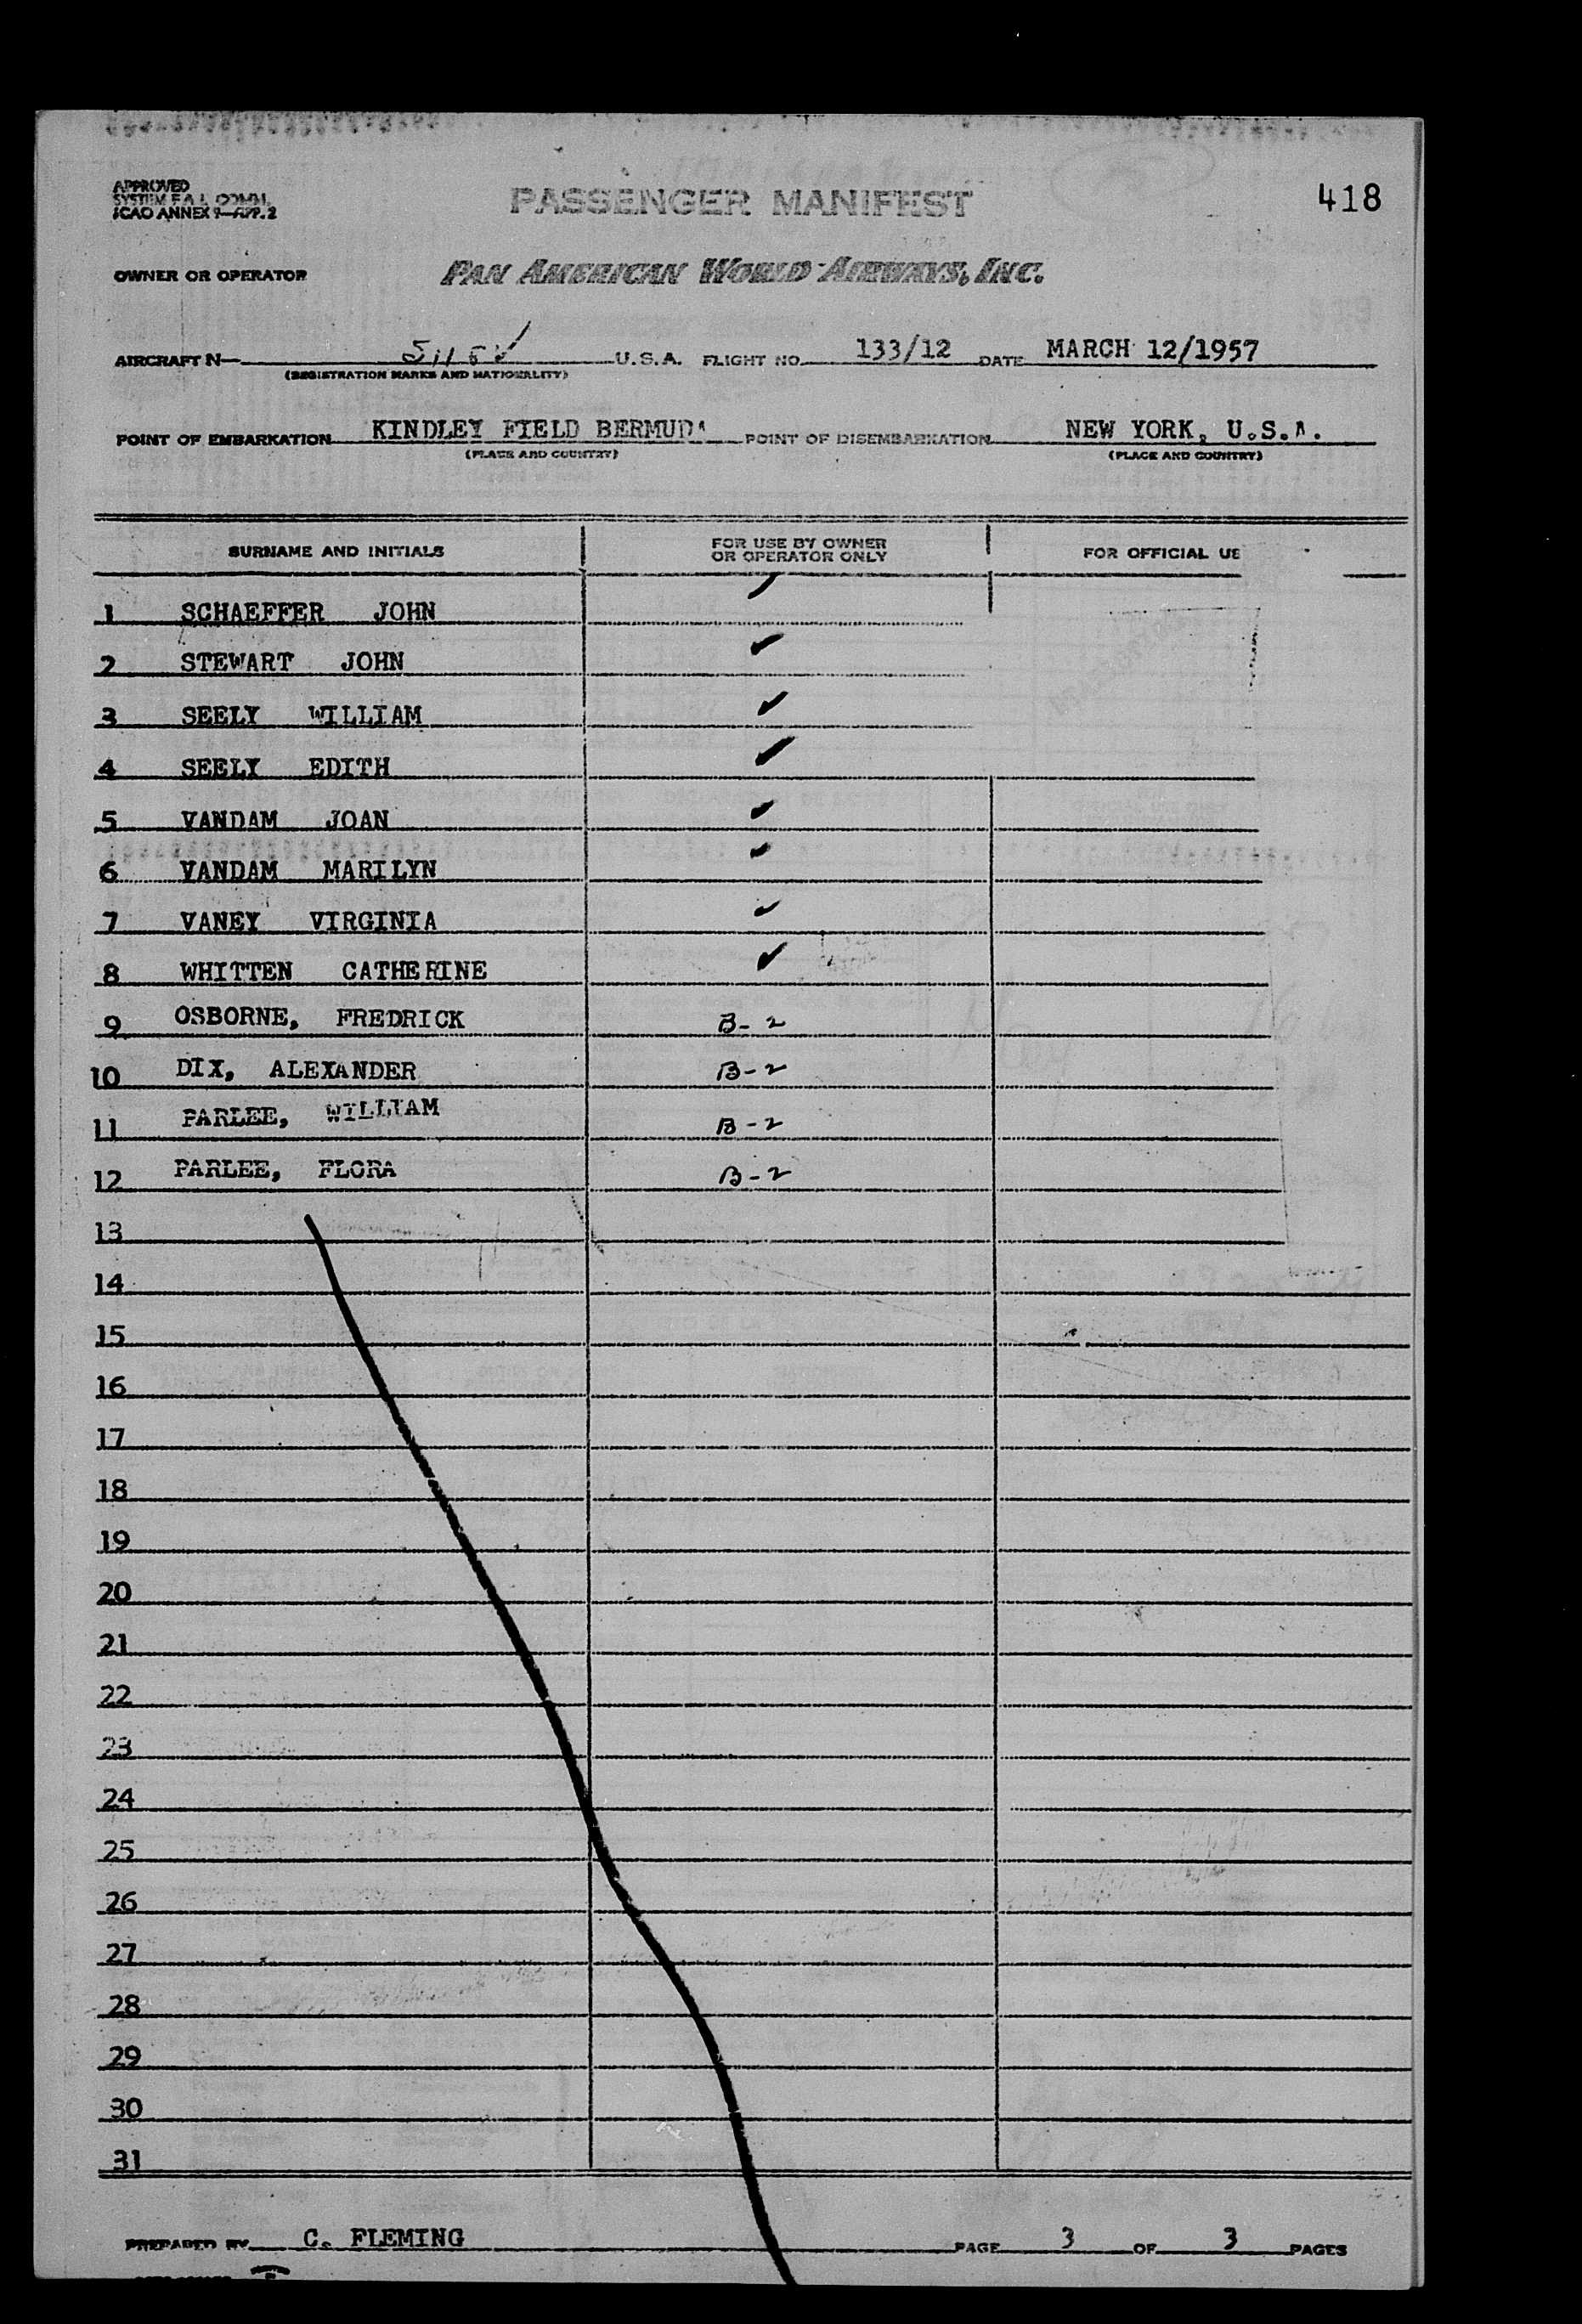 APPROVED
SYSTEM F.A.L. COMM.
ICAO ANNEX 9—APP. 2
PASSENGER MANIFEST
418
OWNER OR OPERATOR PAN AMERICAN WORLD AIRWAYS, INC.
AIRCRAFT N— U.S.A. FLIGHT NO. 133/12 DATE MARCH 12/1957
(REGISTRATION MARKS AND NATIONALITY)
POINT OF EMBARKATION KINDLEY FIELD BERMUDA POINT OF DISEMBARKATION NEW YORK, U.S.A.
(PLACE AND COUNTRY) (PLACE AND COUNTRY)
SURNAME AND INITIALS FOR USE BY OWNER OR OPERATOR ONLY FOR OFFICIAL USE
1 SCHAEFFER JOHN ✓
2 STEWART JOHN ✓
3 SEELY WILLIAM ✓
4 SEELY EDITH ✓
5 VANDAM JOAN ✓
6 VANDAM MARILYN ✓
7 VANEY VIRGINIA ✓
8 WHITTEN CATHERINE ✓
9 OSBORNE, FREDRICK B-2
10 DIX, ALEXANDER B-2
11 PARLEE, WILLIAM B-2
12 PARLEE, FLORA B-2
13
14
15
16
17
18
19
20
21
22
23
24
25
26
27
28
29
30
31
PREPARED BY C. FLEMING PAGE 3 OF 3 PAGES